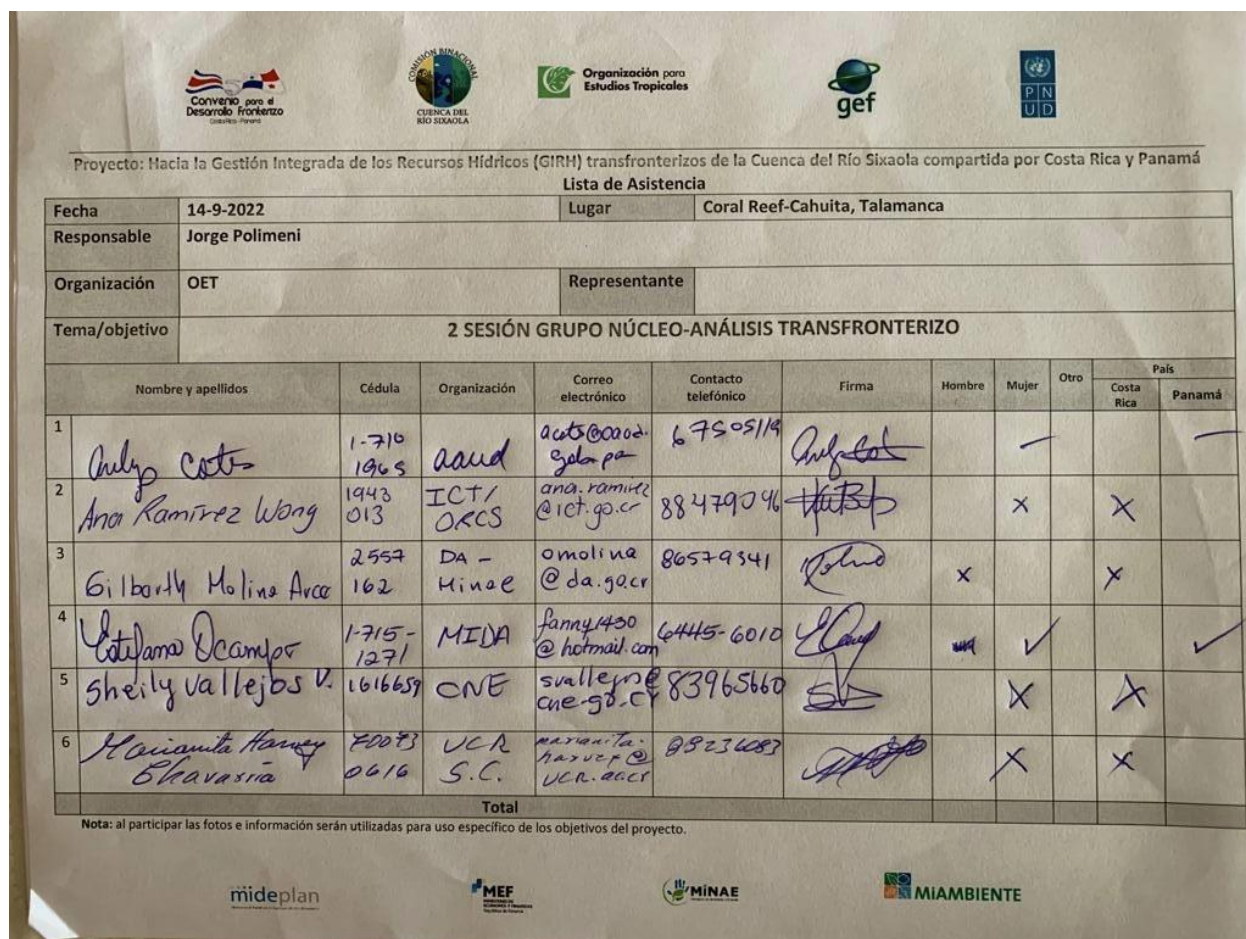 Convenio para el
Desarrollo Fronterizo
Costa Rica - Panamá
COMISIÓN BINACIONAL
CUENCA DEL
RÍO SIXAOLA
Organización para
Estudios Tropicales
gef
P N
U D
Proyecto: Hacia la Gestión Integrada de los Recursos Hídricos (GIRH) transfronterizos de la Cuenca del Río Sixaola compartida por Costa Rica y Panamá
Lista de Asistencia
Fecha 14-9-2022 Lugar Coral Reef-Cahuita, Talamanca
Responsable Jorge Polimeni
Organización OET Representante
Tema/objetivo 2 SESIÓN GRUPO NÚCLEO-ANÁLISIS TRANSFRONTERIZO
Nombre y apellidos Cédula Organización Correo electrónico Contacto telefónico Firma Hombre Mujer Otro País
Costa Rica Panamá
1 1-710 67505119
1965 aaud
2 1943 ICT/ ana.ramirez
Ana Ramírez Wong 013 ORCS @ict.go.cr 88479096 x x
3 2557 DA - omolina 86579341
Gilborth Molina Arce 162 Minae @da.go.cr x x
4 1-715- fanny1430
Estefama Ocampo 1271 MIDA @hotmail.com 6445-6010
5 Sheily Vallejos V. 1616659 CNE cne.go.cr 83965660 x x
6 70073 UCR marianita.
Marianita Harvey Chavarría 0616 S.C. harvey@ 88236083 x x
Total
Nota: al participar las fotos e información serán utilizadas para uso específico de los objetivos del proyecto.
mideplan
MEF
MINAE
MiAMBIENTE